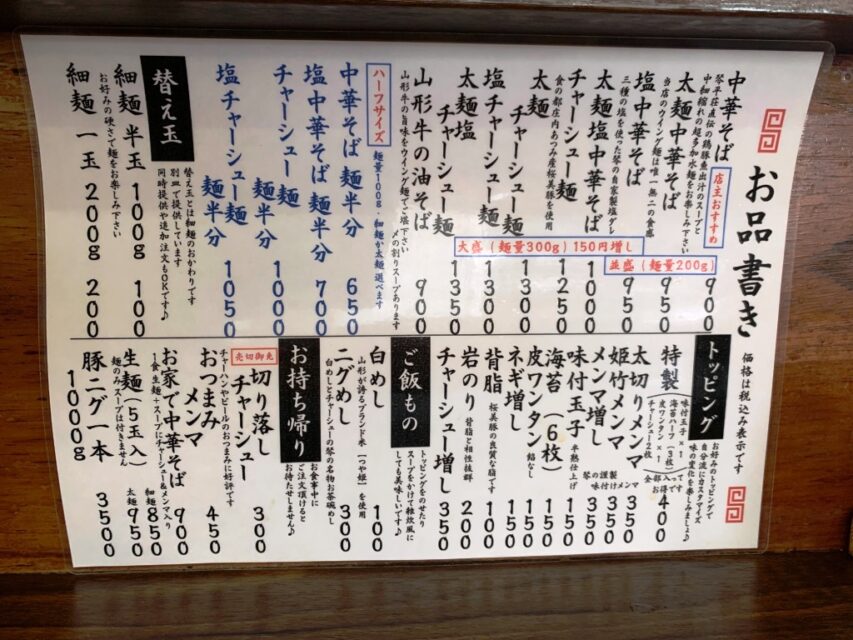 お品書き
価格は税込み表示です
中華そば 900
琴平荘直伝の鶏豚魚出汁のスープと
中細縮れの超多加水麺をお楽しみ下さい
店主おすすめ
太麺中華そば 950
当店のウイング麺は唯一無二の食感
塩中華そば 950
三種の塩を使った琴の自家製塩ダレ
太麺塩中華そば 1000
チャーシュー麺 1250
食の都庄内あつみ産桜美豚を使用
太麺チャーシュー麺 1300
塩チャーシュー麺 1300
太麺塩チャーシュー麺 1350
並盛(麺量200g)
大盛(麺量300g)150円増し
山形牛の油そば 900
山形牛の旨味をウイング麺でご堪能下さい
〆の割りスープあります
ハーフサイズ
麺量100g・細麺か太麺選べます
中華そば 麺半分 650
塩中華そば 麺半分 700
チャーシュー麺 麺半分 1000
塩チャーシュー麺 麺半分 1050
替え玉
替え玉とは細麺のおかわりです
別皿で提供しています
同時提供や追加注文もOKです♪
細麺 半玉 100g 100
お好みの硬さで麺をお楽しみ下さい
細麺 一玉 200g 200
トッピング
お好みのトッピングで
自分流にカスタマイズ
味の変化を楽しみましょ♪
特製 400
味付玉子×1
海苔ハーフ(3枚)
皮ワンタン×1
チャーシュー2枚
全部入って
お得です
太切りメンマ 350
姫竹メンマ 350
メンマ増し 350
琴の謹製
味付けメンマ
味付玉子 150
半熟仕上げ
海苔(6枚) 150
皮ワンタン 150
餡なし
ネギ増し 150
背脂 150
桜美豚の良質な脂です
岩のり 200
背脂と相性抜群
チャーシュー増し 350
ご飯もの
トッピングをのせたり
スープをかけて雑炊風に
しても美味しいです♪
白めし 100
山形が誇るブランド米【つや姫】を使用
ニグめし 300
白めしとチャーシューの琴の名物お茶碗めし
お持ち帰り
お食事中に
ご注文頂けると
お待たせしません♪
売切御免
切り落しチャーシュー 300
おつまみメンマ 450
チャーハンやビールのおつまみに好評です
お家で中華そば 900
一食生麺+スープにチャーシュー&メンマ入り
生麺(5玉入) 細麺 850 太麺 950
麺のみスープは付きません
豚ニグ一本 1000g 3500